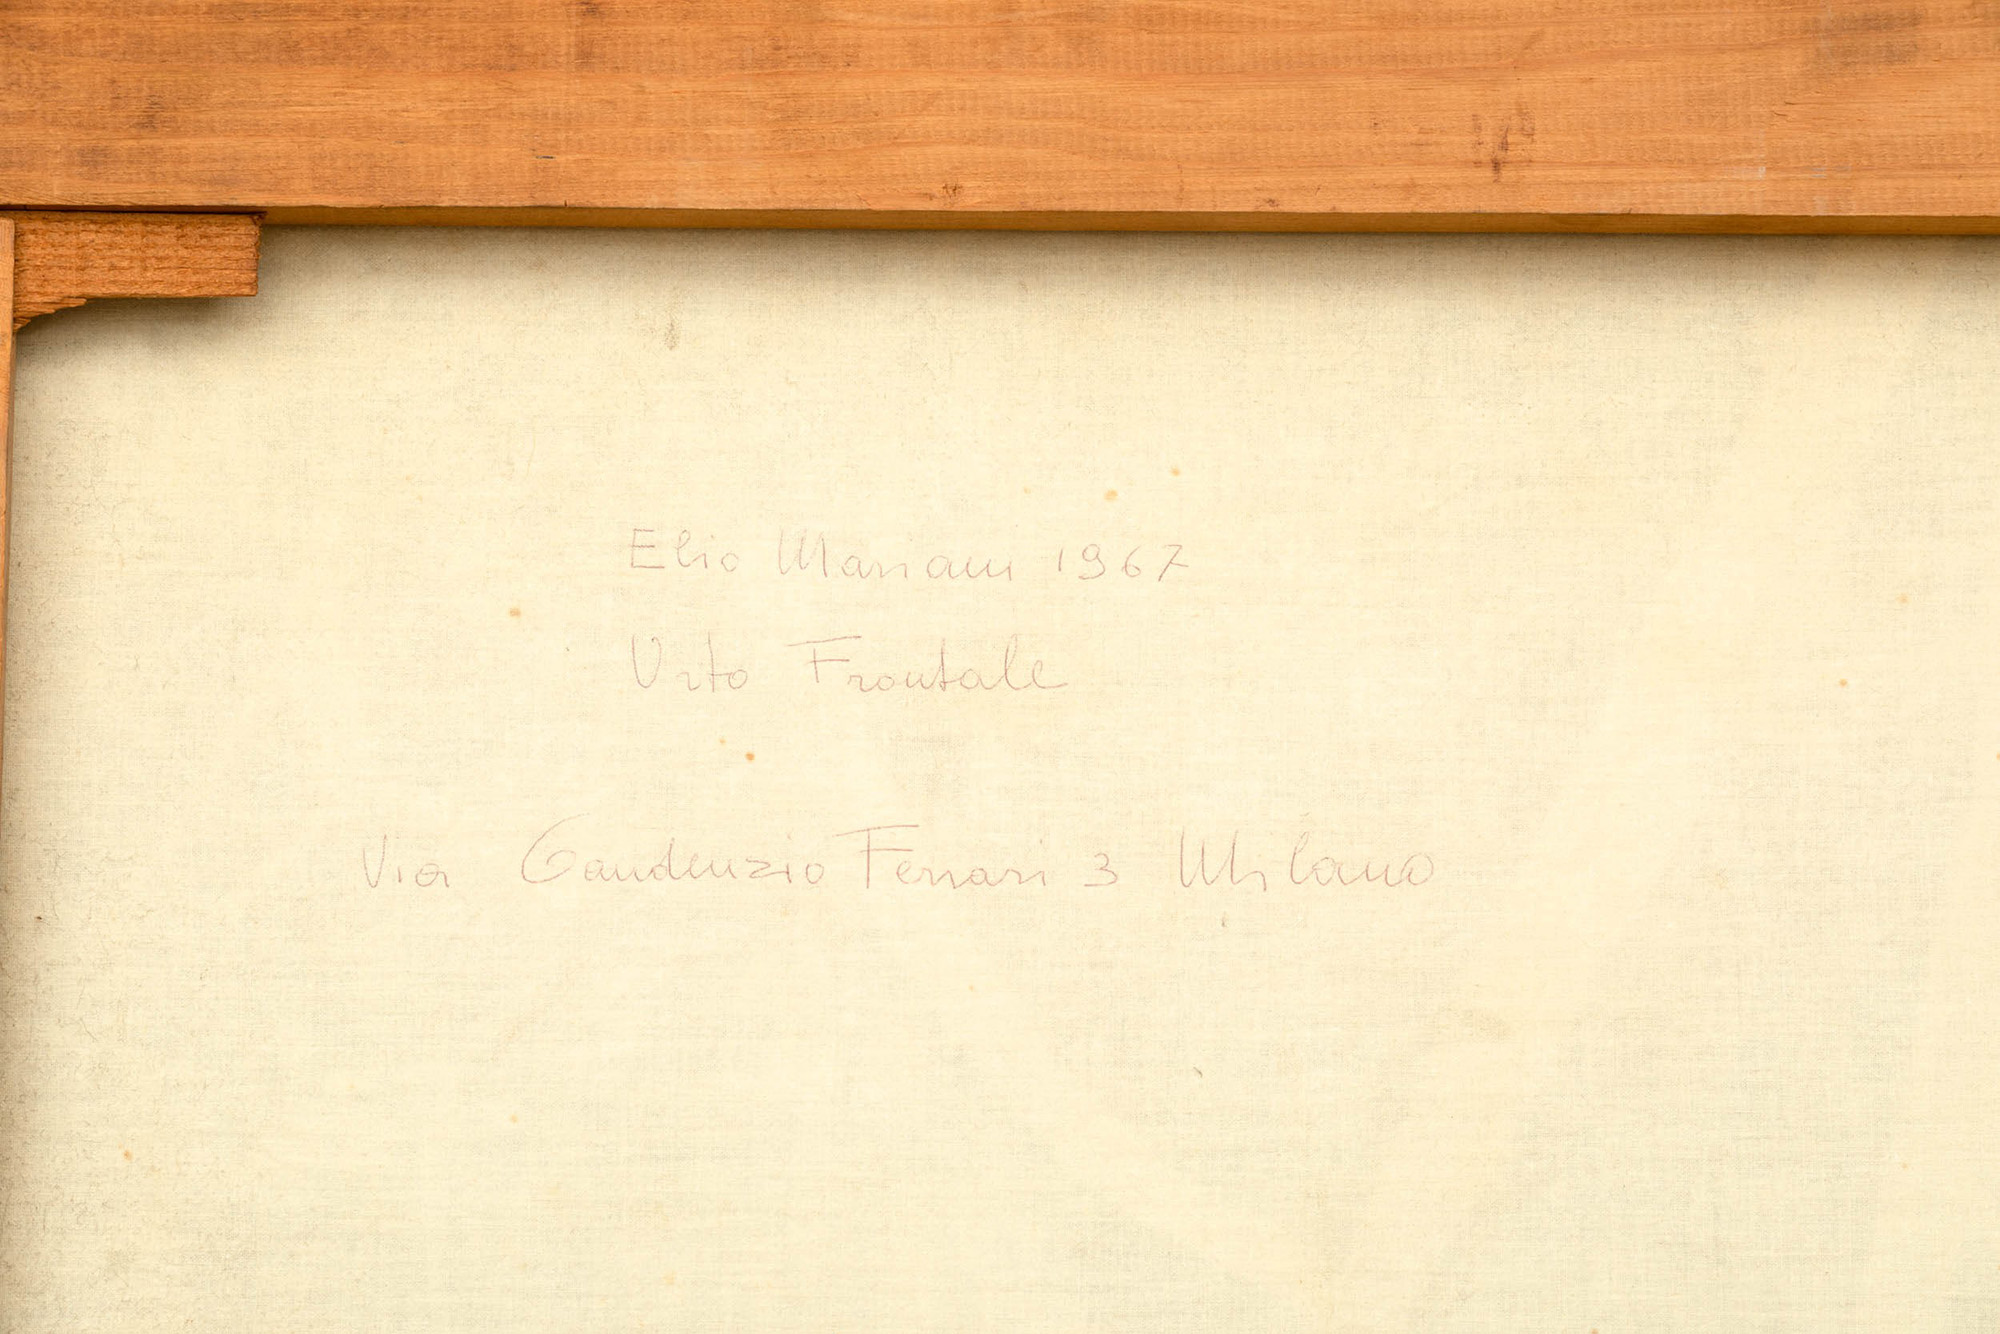 Elio Mariani 1967
Urto Frontale
Via Gaudenzio Ferrari 3 Milano